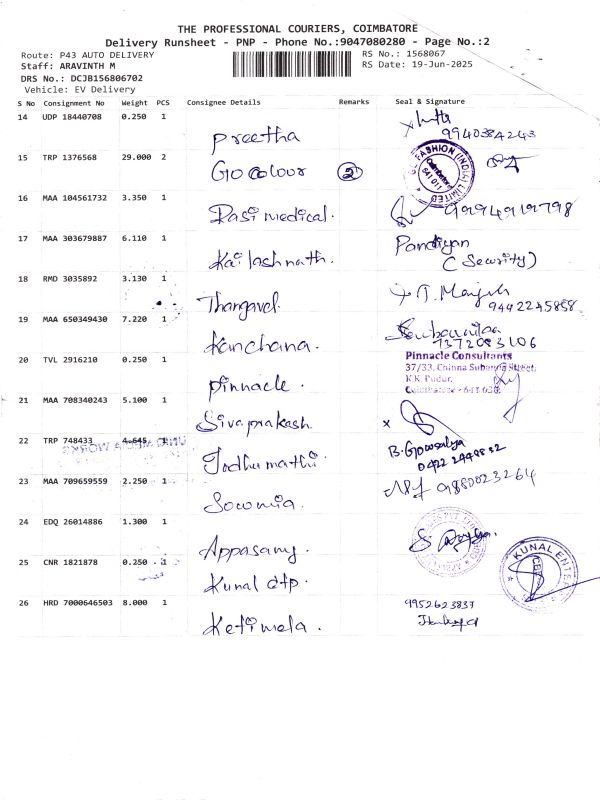 THE PROFESSIONAL COURIERS, COIMBATORE
Delivery Runsheet - PNP - Phone No.:9047080280 - Page No.:2
Route: P43 AUTO DELIVERY
RS No.: 1568067
Staff: ARAVINTH M
RS Date: 19-Jun-2025
DRS No.: DCJB156806702
Vehicle: EV Delivery
S No Consignment No Weight PCS Consignee Details Remarks Seal & Signature
14 UDP 18440708 0.250 1
Preetha 9940384243
15 TRP 1376568 29.000 2
Go colour 2
FASHION (INDIA) LIMITED
Coimbatore
641 011
16 MAA 104561732 3.350 1
Dasi medical.
17 MAA 303679887 6.110 1
Kailashnath. Pandiyan
(Security)
18 RMD 3035892 3.130 1
Thangavel. 9442245858
19 MAA 650349430 7.220 1
Kanchana. 7372083106
20 TVL 2916210 0.250 1
Pinnacle Consultants
37/33, Chinna Subanna Street,
K.K. Pudur,
Coimbatore - 641 038.
Pinnacle.
21 MAA 708340243 5.100 1
Sivaprakash
22 TRP 748433 4.645 1
Jodhumathi. B. Gowsalya
0422 2449832
23 MAA 709659559 2.250 1
Sowmia. 9880023264
24 EDQ 26014886 1.300 1
Appasamy.
25 CNR 1821878 0.250 1
Kunal etp.
KUNAL ENTER
CBE
26 HRD 7000646503 8.000 1
Ketimela. 9952623837